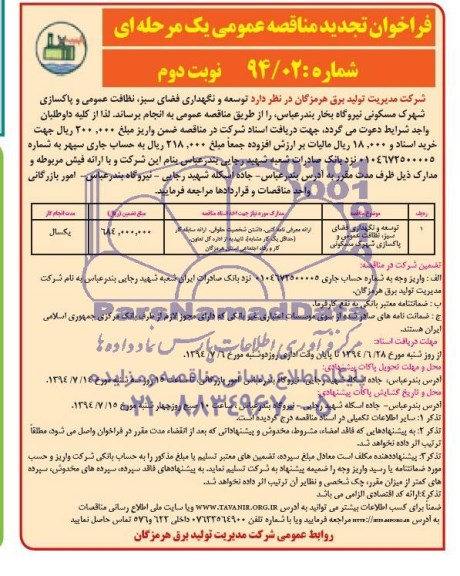 فراخوان تجدید مناقصه عمومی یک مرحله ای
شماره: ۹۴/۰۲ نوبت دوم
شرکت مدیریت تولید برق هرمزگان در نظر دارد توسعه و نگهداری فضای سبز، نظافت عمومی و پاکسازی
شهرک مسکونی نیروگاه بخار بندرعباس، را از طریق مناقصه عمومی به انجام برساند. لذا از کلیه داوطلبان
واجد شرایط دعوت می گردد، جهت دریافت اسناد شرکت در مناقصه ضمن واریز مبلغ ۲۰۰,۰۰۰ ریال جهت
خرید اسناد و ۱۸,۰۰۰ ریال مالیات بر ارزش افزوده جمعاً مبلغ ۲۱۸,۰۰۰ ریال به حساب جاری سپهر به شماره
۰۱۰۴۶۷۲۵۰۰۰۰۵ نزد بانک صادرات شعبه شهید رجایی بندرعباس بنام این شرکت و با ارائه فیش مربوطه و
مدارک ذیل ظرف مدت مقرر به آدرس بندرعباس- جاده اسکله شهید رجایی - نیروگاه بندرعباس- امور بازرگانی
واحد مناقصات و قراردادها مراجعه فرمایید.
ردیف موضوع مناقصه مدارک مورد نیاز جهت اخذ اسناد مناقصه مبلغ تضمین (ریال) مدت انجام کار
۱ توسعه و نگهداری فضای سبز، نظافت عمومی و پاکسازی شهرک مسکونی ارائه معرفی نامه کتبی، داشتن شخصیت حقوقی، ارائه سابقه کار (حداقل یک کار مشابه)، تاییدیه از اداره کل تعاون، کار و رفاه اجتماعی استان هرمزگان ۶۸۴,۰۰۰,۰۰۰ یکسال
تضمین شرکت در مناقصه:
الف : واریز وجه به شماره حساب جاری ۰۱۰۴۶۷۲۵۰۰۰۰۵ نزد بانک صادرات ایران شعبه شهید رجایی بندرعباس به نام شرکت
مدیریت تولید برق هرمزگان.
ب : ضمانتنامه معتبر بانکی به نفع کارفرما.
ج : ضمانت نامه های صادر شده از سوی موسسات اعتباری غیر بانکی که دارای مجوز لازم از طرف بانک مرکزی جمهوری اسلامی
ایران هستند.
مهلت دریافت اسناد:
از روز شنبه مورخ ۱۳۹۴/۰۶/۲۸ تا پایان وقت اداری روز دوشنبه مورخ ۱۳۹۴/۷/۶
محل و مهلت تحویل پاکات پیشنهادی:
آدرس بندرعباس، جاده اسکله شهید رجایی- نیروگاه بندرعباس امور بازرگانی. تا ساعت ۱۵ روز سه شنبه مورخ ۱۳۹۴/۷/۱۴
محل و تاریخ گشایش پاکات پیشنهادی:
آدرس بندرعباس- جاده اسکله شهید رجایی- نیروگاه بندرعباس- ساعت ۱۰ صبح روز چهار شنبه مورخ ۱۳۹۴/۷/۱۵
تذکر ۱: سایر اطلاعات تکمیلی در اسناد مناقصه درج گردیده است.
تذکر ۲: به پیشنهادهایی که فاقد امضاء، مشروط، مخدوش و پیشنهاداتی که بعد از انقضاء مدت مقرر در فراخوان واصل می شود، مطلقاً
ترتیب اثر داده نخواهد شد.
تذکر۳: پیشنهاددهنده مکلف است معادل مبلغ سپرده، تضمین های معتبر تسلیم یا مبلغ مذکور را به حساب بانکی شرکت واریز و حسب
مورد ضمانتنامه یا رسید واریز وجه را ضمیمه پیشنهاد به شرکت تسلیم نماید. به پیشنهادهای فاقد سپرده، سپرده های مخدوش، سپرده
های کمتر از میزان مقرر، چک شخصی و نظایر آن ترتیب اثر داده نخواهد شد.
تذکر۴: ارائه کد اقتصادی الزامی می باشد.
ضمناً برای کسب اطلاعات بیشتر می توانید به آدرس WWW.TAVANIR.ORG.IR ویا سایت ملی اطلاع رسانی مناقصات
به آدرس مراجعه فرمایید ویا با شماره تلفن ۰۷۶۳۳۵۶۴۹۰۰ داخلی ۶۲۲ و۵۷۶ تماس حاصل نمایید
روابط عمومی شرکت مدیریت تولید برق هرمزگان
پایگاه اطلاع رسانی مناقصه و مزایده
۰۲۱-۸۸۳۴۹۶۷۰-۵